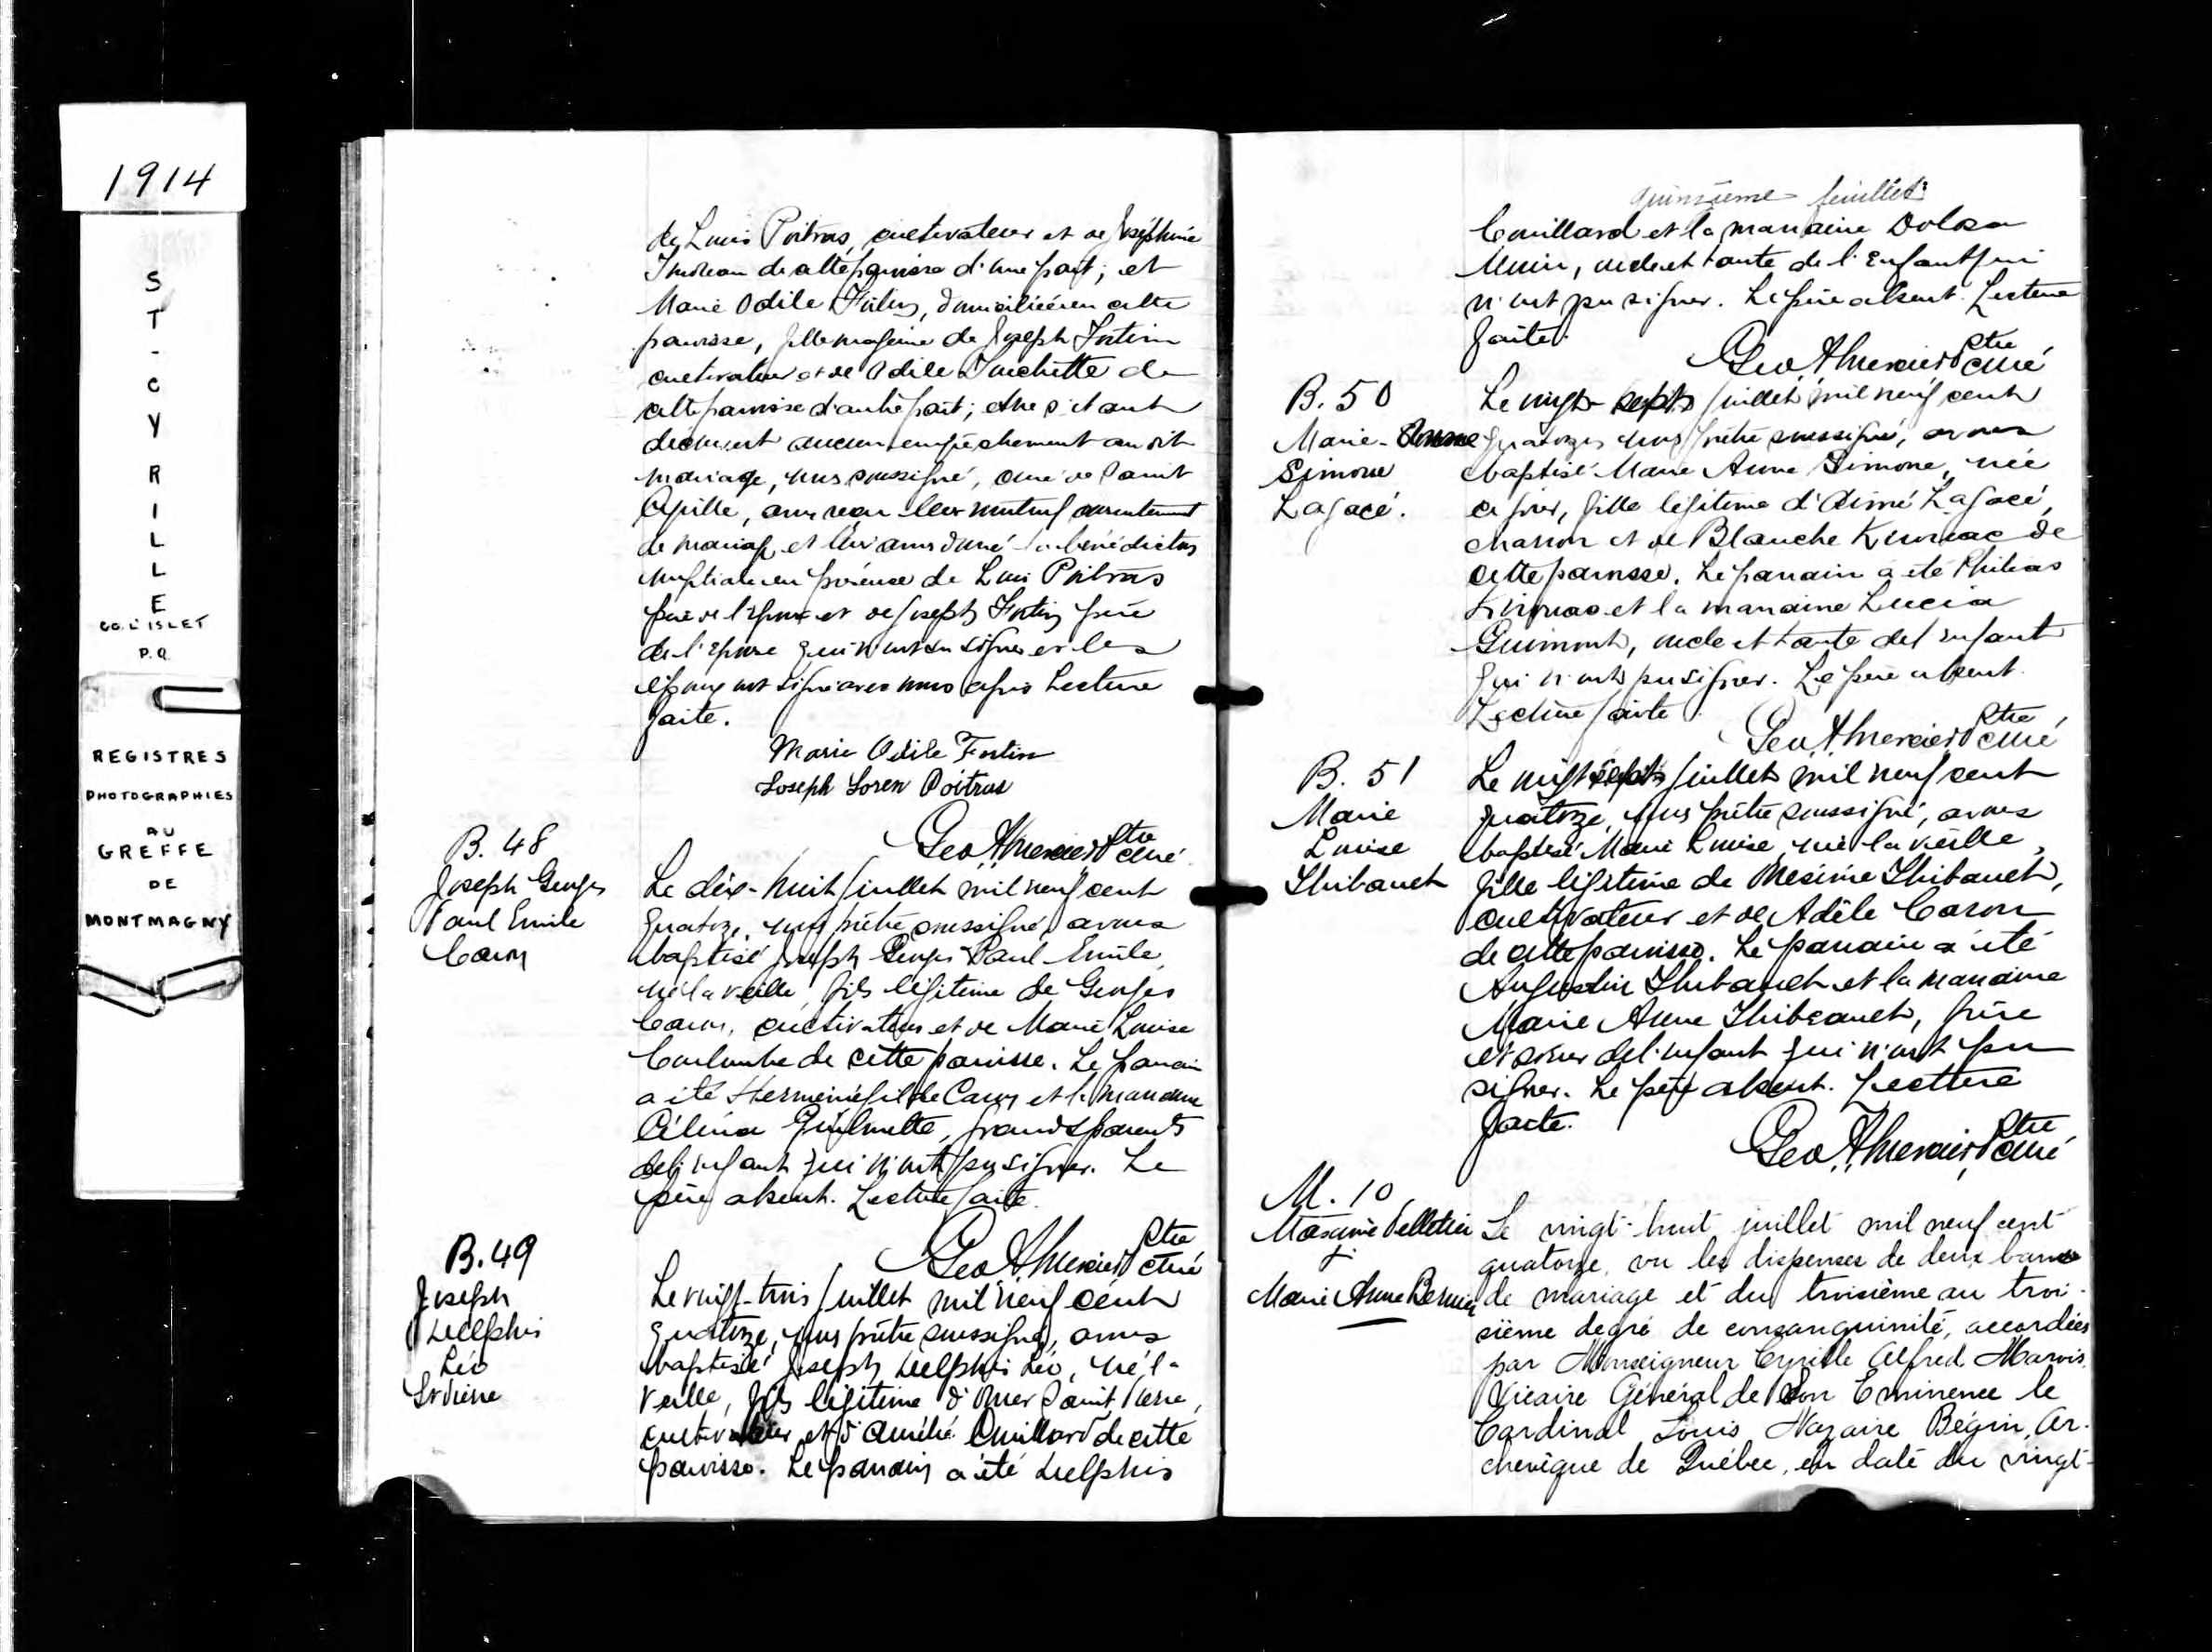 1914
ST-CYRILLE
CO. L'ISLET
P.Q.
REGISTRES
PHOTOGRAPHIES
AU
GREFFE
DE
MONTMAGNY
de Louis Poitras, cultivateur et de Joséphine
de cette paroisse d'une part; et
Marie Odile Fortin, domiciliée en cette
paroisse, fille majeure de Joseph Fortin
cultivateur et de Odile Fouchette de
cette paroisse d'autre part; et ne s'étant
découvert aucun empêchement au dit
mariage, nous soussigné, curé de Saint
Cyrille, avons reçu leur mutuel consentement
de mariage et leur avons donné la bénédiction
nuptiale en présence de Louis Poitras
père de l'époux et de Joseph Fortin père
de l'épouse qui n'ont su signer et les
époux ont signé avec nous après lecture
faite.
Marie Odile Fortin
Joseph Loren Poitras
Geo A Mercier Ptre
curé
B. 48
Joseph Georges
Paul Emile
Caron
Le dix-huit juillet mil neuf cent
quatorze, nous prêtre soussigné avons
baptisé Joseph Georges Paul Emile,
né la veille, fils légitime de Georges
Caron, cultivateur et de Marie Louise
Coulombe de cette paroisse. Le parrain
a été Herménégilde Caron et la marraine
Célina, grands parents
de l'enfant qui n'ont pu signer. Le
père absent. Lecture faite.
Geo A. Mercier Ptre
curé
B. 49
Joseph
Delphis
Léo
St Pierre
Le vingt-trois juillet mil neuf cent
quatorze, nous prêtre soussigné, avons
baptisé Joseph Delphis Léo, né la
veille, fils légitime d'Omer Saint Pierre,
cultivateur et d'Amélie Couillard de cette
paroisse. Le parrain a été Delphis
quinzième feuillet
Couillard et la marraine
, oncle et tante de l'enfant qui
n'ont pu signer. Le père absent. Lecture
faite.
Geo A Mercier Ptre
curé
B. 50
Marie-Anne
Simone
Lagacé.
Le vingt-sept juillet mil neuf cent
quatorze, nous prêtre soussigné, avons
baptisé Marie Anne Simone, née
ce jour, fille légitime d'Aimé Lagacé,
et de Blanche Kirouac de
cette paroisse. Le parrain a été Philias
Kirouac et la marraine Lucia
Guimont, oncle et tante de l'enfant
qui n'ont pu signer. Le père absent.
Lecture faite.
Geo A Mercier Ptre
curé
B. 51
Marie
Louise
Thibault
Le vingt-sept juillet mil neuf cent
quatorze, nous prêtre soussigné, avons
baptisé Marie Louise, née la veille,
fille légitime de Thibault,
cultivateur et de Adèle Caron
de cette paroisse. Le parrain a été
Augustin Thibault et la marraine
Marie Anne Thibeault, frère
et soeur de l'enfant qui n'ont pu
signer. Le père absent. Lecture
faite.
Geo A. Mercier Ptre
curé
M. 10
Maxime Pelletier
+
Marie Anne Bernier
Le vingt-huit juillet mil neuf cent
quatorze, vu les dispenses de deux bans
de mariage et du troisième au troi-
sième degré de consanguinité, accordées
par Monseigneur Cyrille Alfred Marois,
Vicaire Général de Son Eminence le
Cardinal Louis Nazaire Bégin, Ar-
chevêque de Québec, en date du vingt-